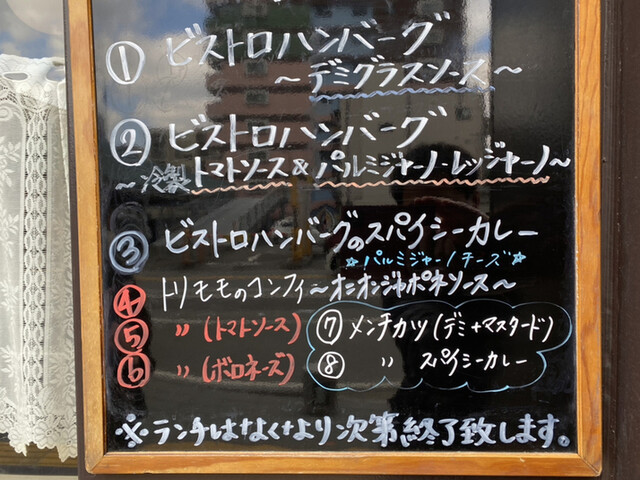 ① ビストロハンバーグ
～デミグラスソース～
② ビストロハンバーグ
～冷製トマトソース&パルミジャーノ・レッジャーノ～
③ ビストロハンバーグのスパイシーカレー
☆パルミジャーノチーズ☆
④ トリモモのコンフィ～オニオンジャポネソース～
⑤ 〃 (トマトソース)
⑥ 〃 (ボロネーズ)
⑦ メンチカツ(デミ+マスタード)
⑧ 〃 スパイシーカレー
※ランチはなくなり次第終了致します。